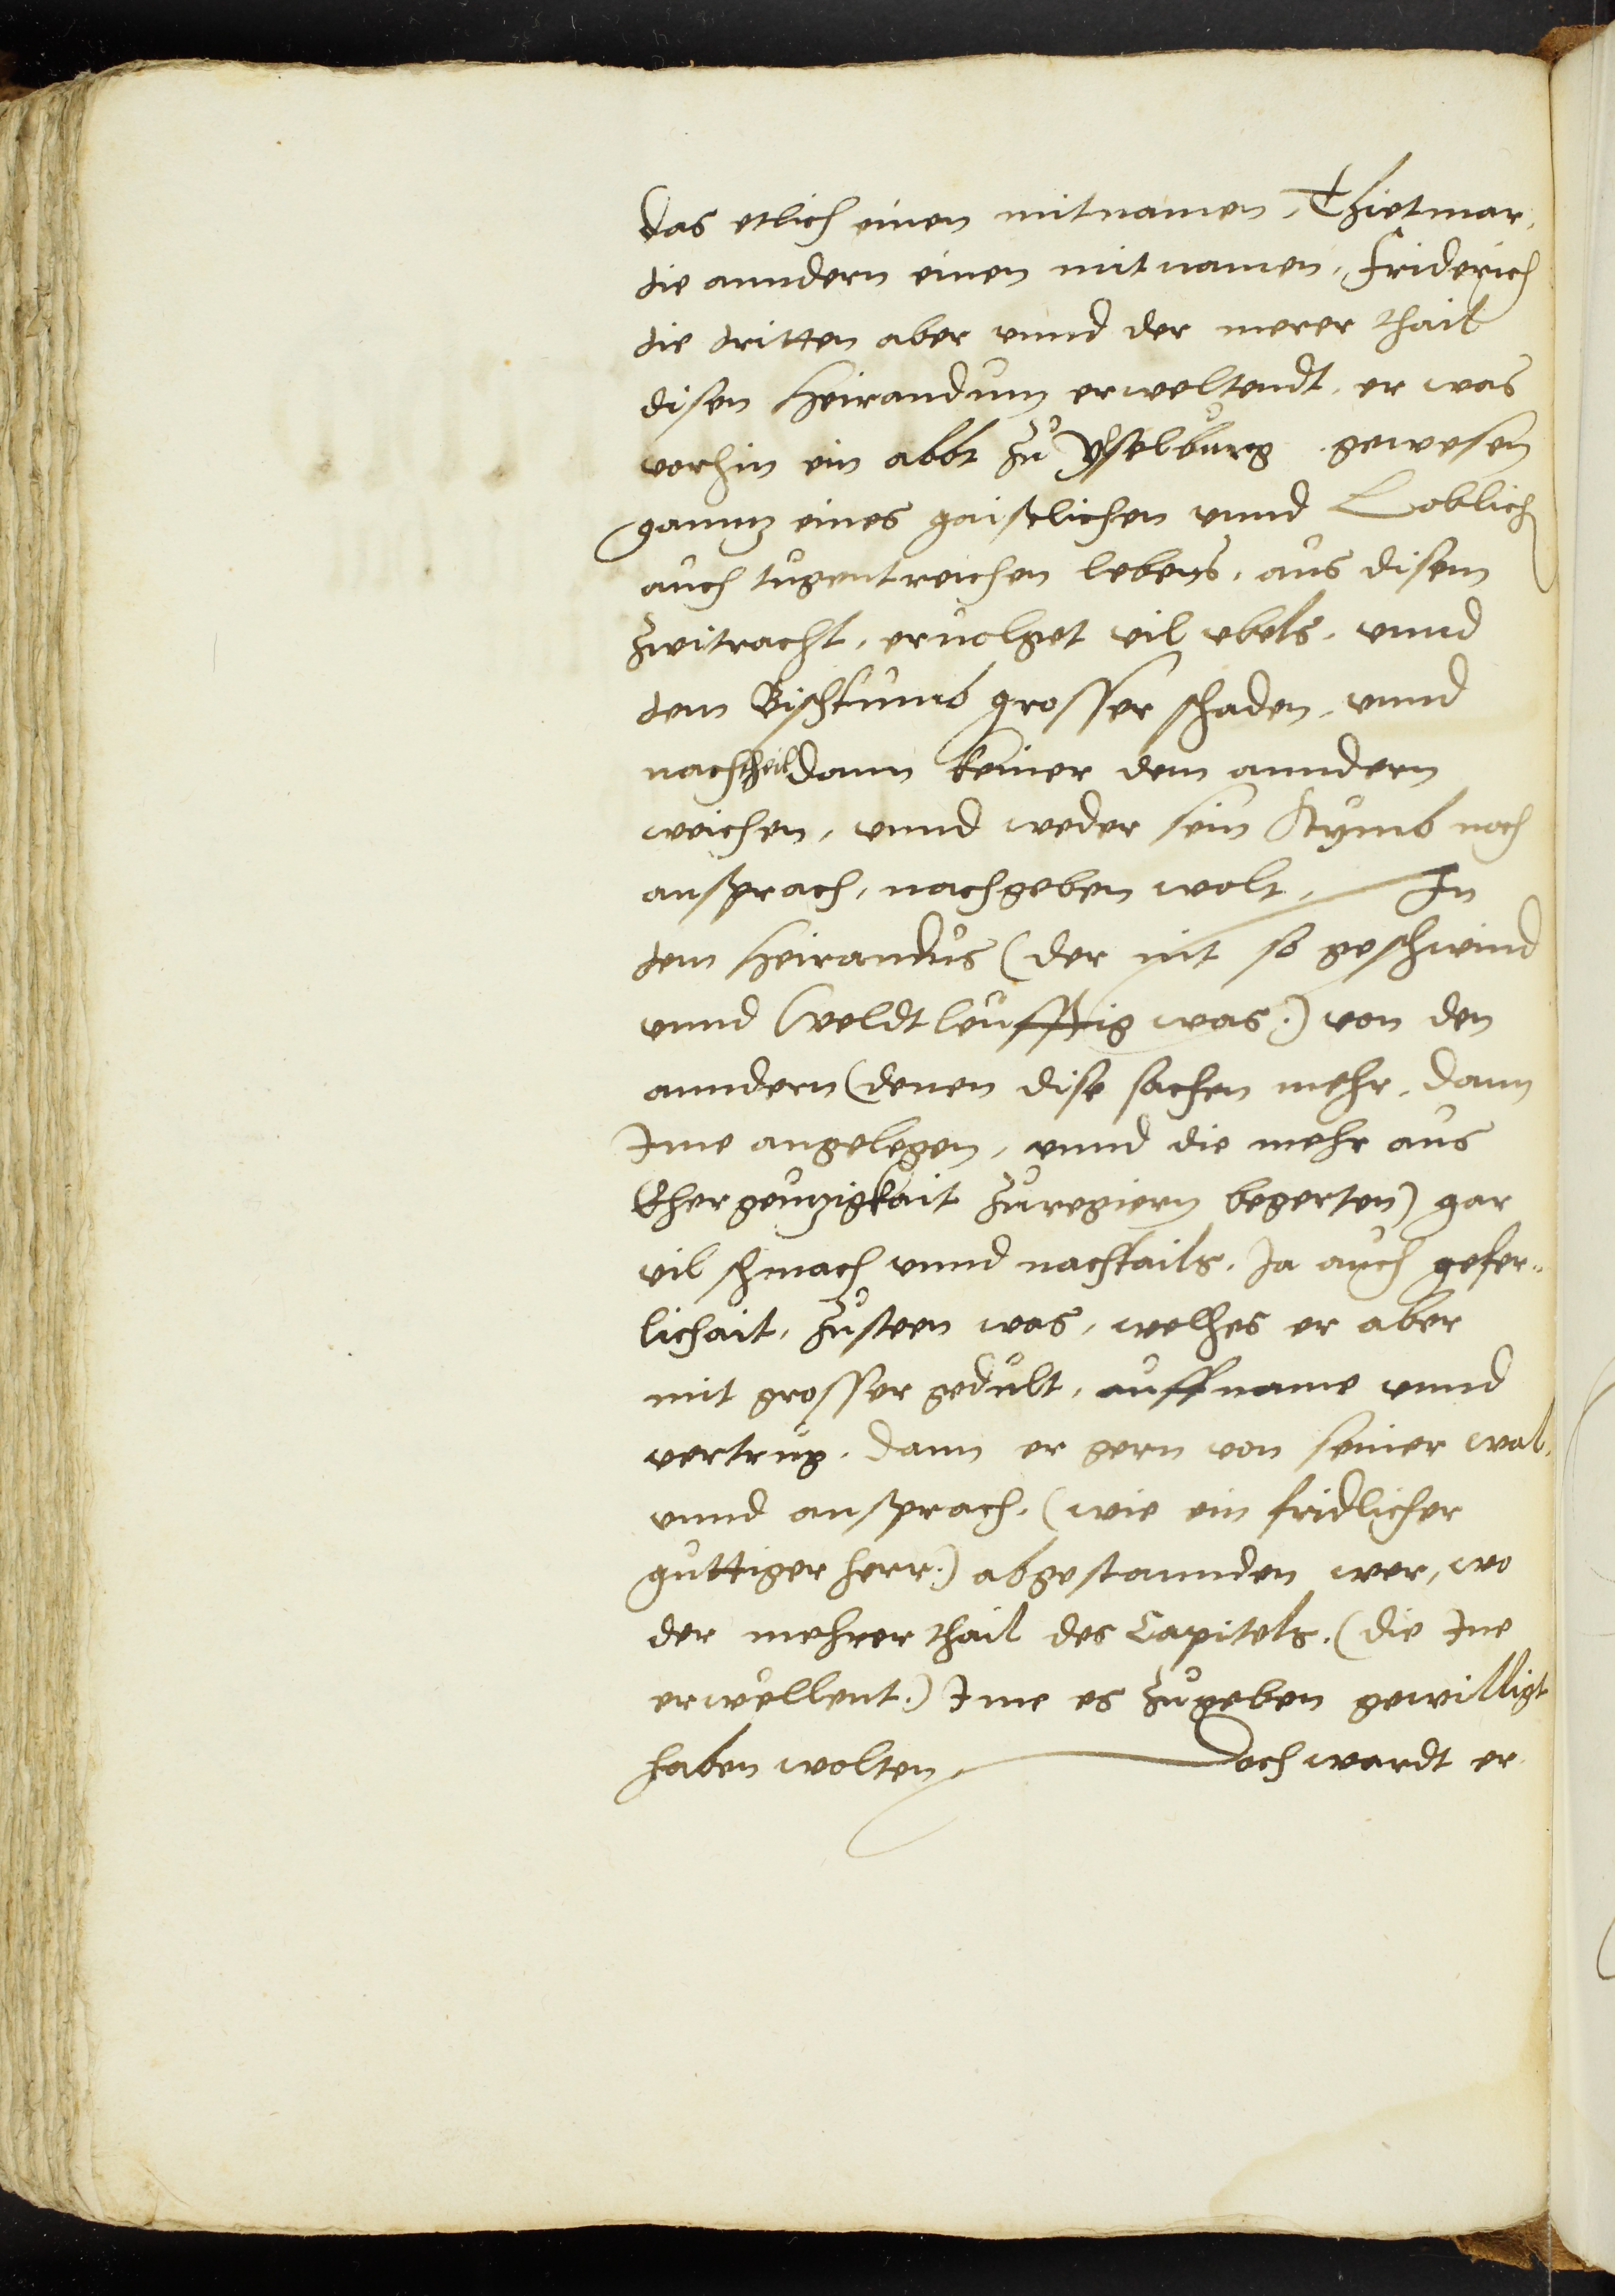 das etlich einen mitnamen, Thietmar,
die anndern einen mit namen, Friderich
die dritten aber vnnd der merer thail
disen Heirandum erweltendt, er was
vorhin ein abbt zu Ysselburg gewesen
gannz eines gaistlichen vnnd Loblich
auch tugentreichen lebens, aus disem
zwitracht, ervolget vil vbels, vnnd
dem Bischtumb grosser schaden, vnnd
nachtheil dann keiner dem anndern
weichen, vnnd weder sein stymb noch
ansprach, nachgeben wolt, In
dem Heirandus (der nit so geschwind
vnnd weldtleuffig was:) von den
anndern (denen dise sachen mehr, dann
Ime angelegen, vnnd die mehr aus
Ehergeuzigkait zuregiern begerten) gar
vil schmach vnnd nachtails, Ja auch gefer„
lichait, zusteen was, welhes er aber
mit grosser gedult, auffname vnnd
vertrug, dann er gern von seiner wal,
vnnd ansprach, (wie ein fridlicher
guttiger herr:) abgestannden wer, wo
der mehrer thail des Capitels, (die Ine
erwellent:) Ime es zugeben gewilligt
haben wolten, Doch wardt er